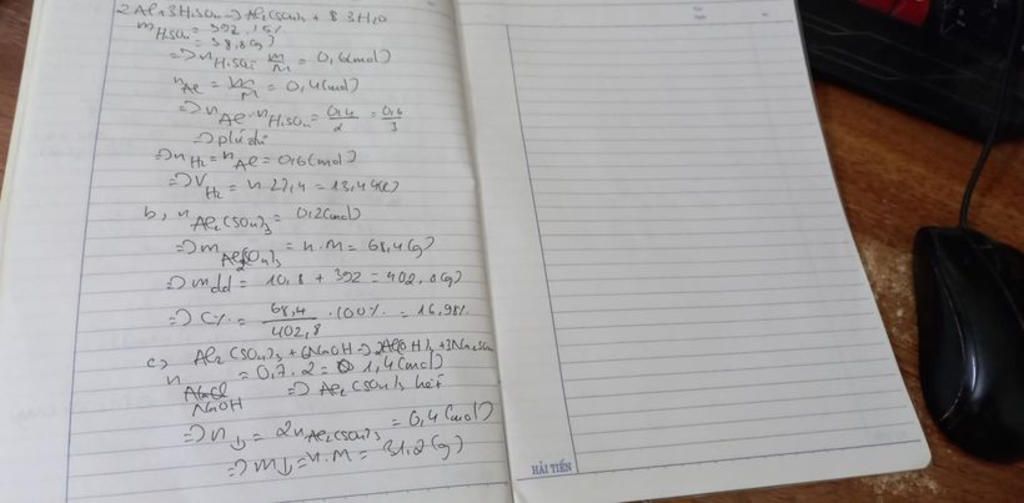 2Al+3H₂SO₄ → Al₂(SO₄)₃ + 3H₂
mH₂SO₄ = 392.15%
= 58,8(g)
=> nH₂SO₄ = m/M = 0,6(mol)
nAl = m/M = 0,4(mol)
=> nAl nH₂SO₄ = 0,4/2 = 0,6/3
=> p/ứ đủ
=> nH₂ = nAl = 0,6(mol)
=> VH₂ = n.22,4 = 13,44(l)
b, nAl₂(SO₄)₃ = 0,2(mol)
=> mAl₂(SO₄)₃ = n.M = 68,4(g)
=> mdd = 10,8 + 392 = 402,8(g)
=> C% = 68,4/402,8 .100% = 16,98%
c) Al₂(SO₄)₃ + 6NaOH → 2Al(OH)₃ + 3Na₂SO₄
nNaOH = 0,7.2 = 1,4(mol)
=> Al₂(SO₄)₃ hết
=> n↓ = 2nAl₂(SO₄)₃ = 0,4(mol)
=> m↓ = n.M = 31,2(g)
HẢI TIẾN